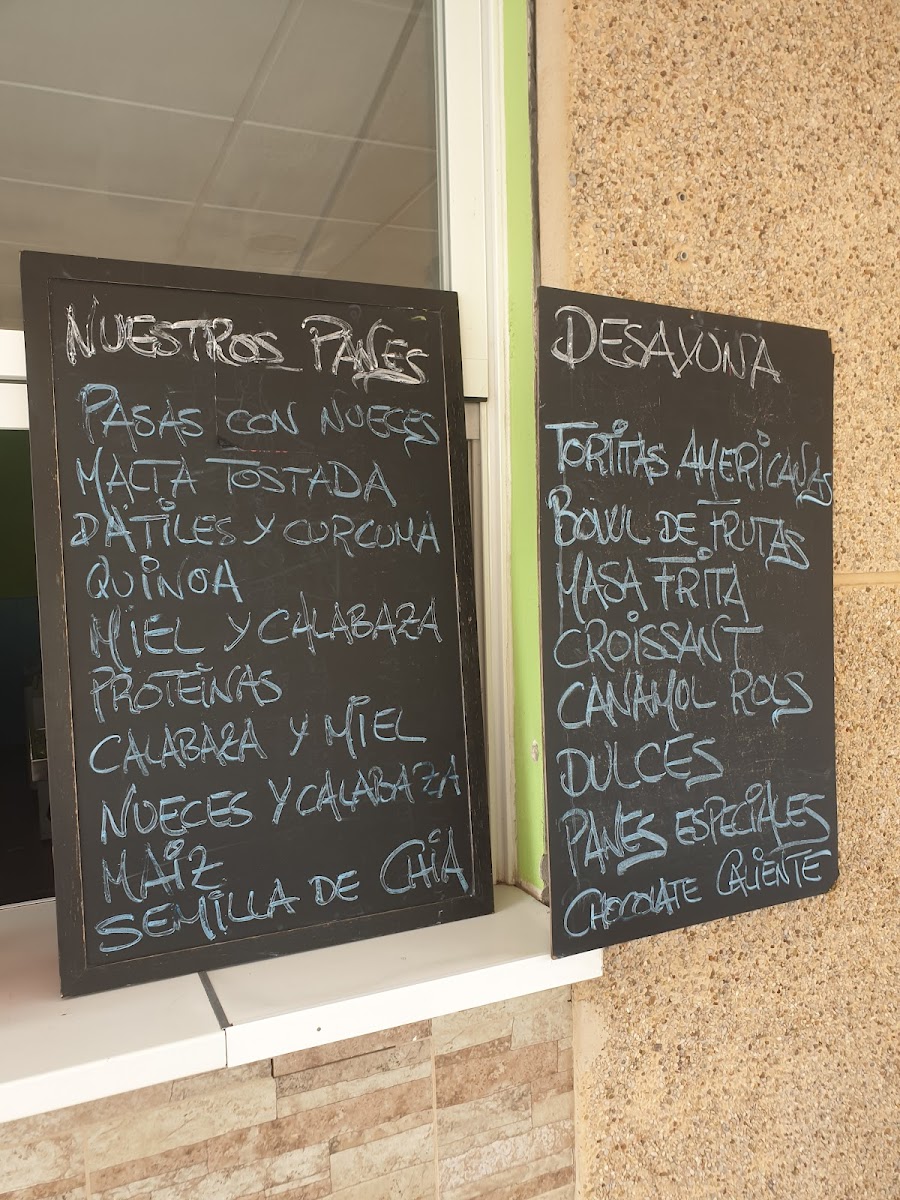 NUESTROS PANES
PASAS CON NUECES
MACTA TOSTADA
DATILES Y CURCUMA
QUINOA
MIEL Y CALABAZA
PROTEINAS
CALABAZA Y MIEL
NUECES Y CALABAZA
MAIZ
SEMILLA DE CHIA
DESAYUNA
TORTITAS AMERICANAS
BOWL DE FRUTAS
MASA FRITA
CROISSANT
CANAMOL ROLS
DULCES
PANES ESPECIALES
CHOCOLATE CALIENTE